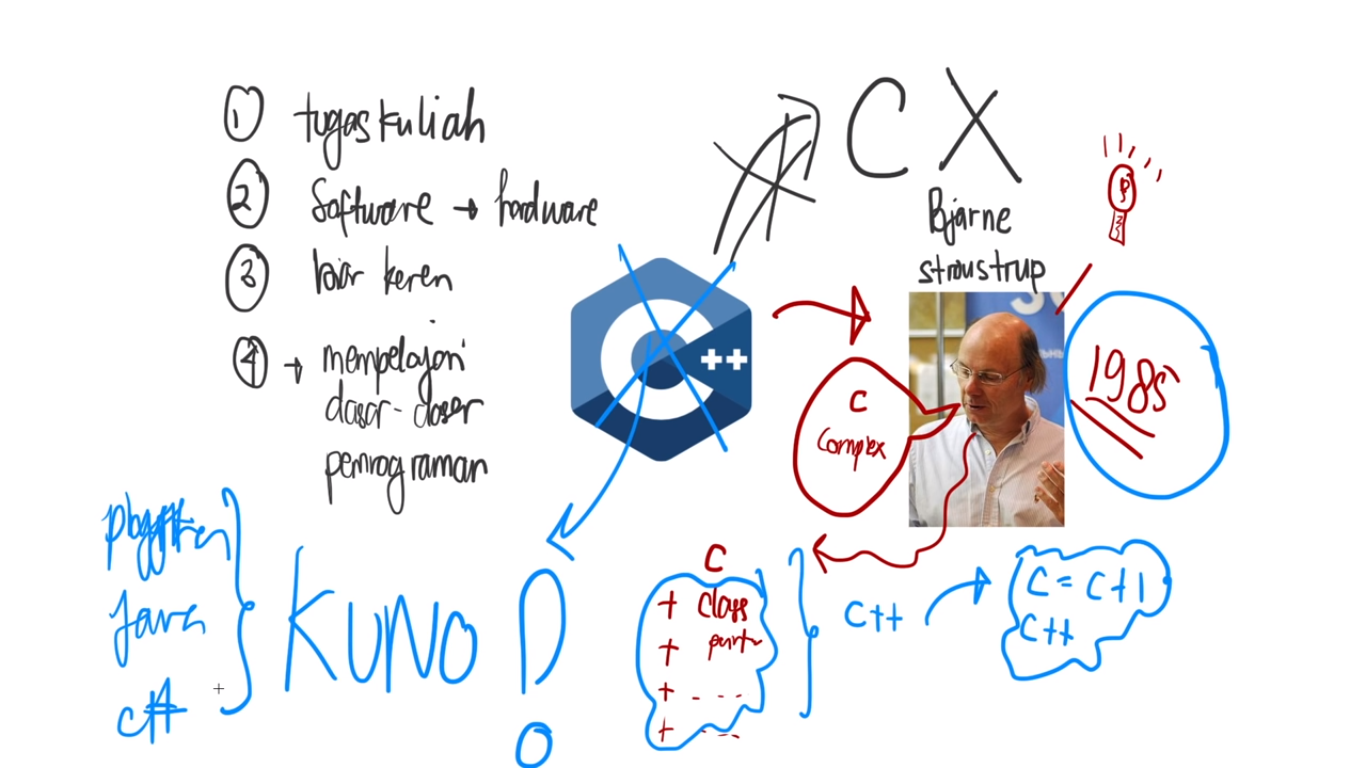 1 tugas kuliah
2 Software → hardware
3 biar keren
4 → mempelajari
dasar-dasar
pemrograman
C X
Bjarne
stroustrup
C++
C
Complex
1985
python
Java
C++
KUNO
C
+ class
+
+ ----
+ ----
C++
C = C+1
C++